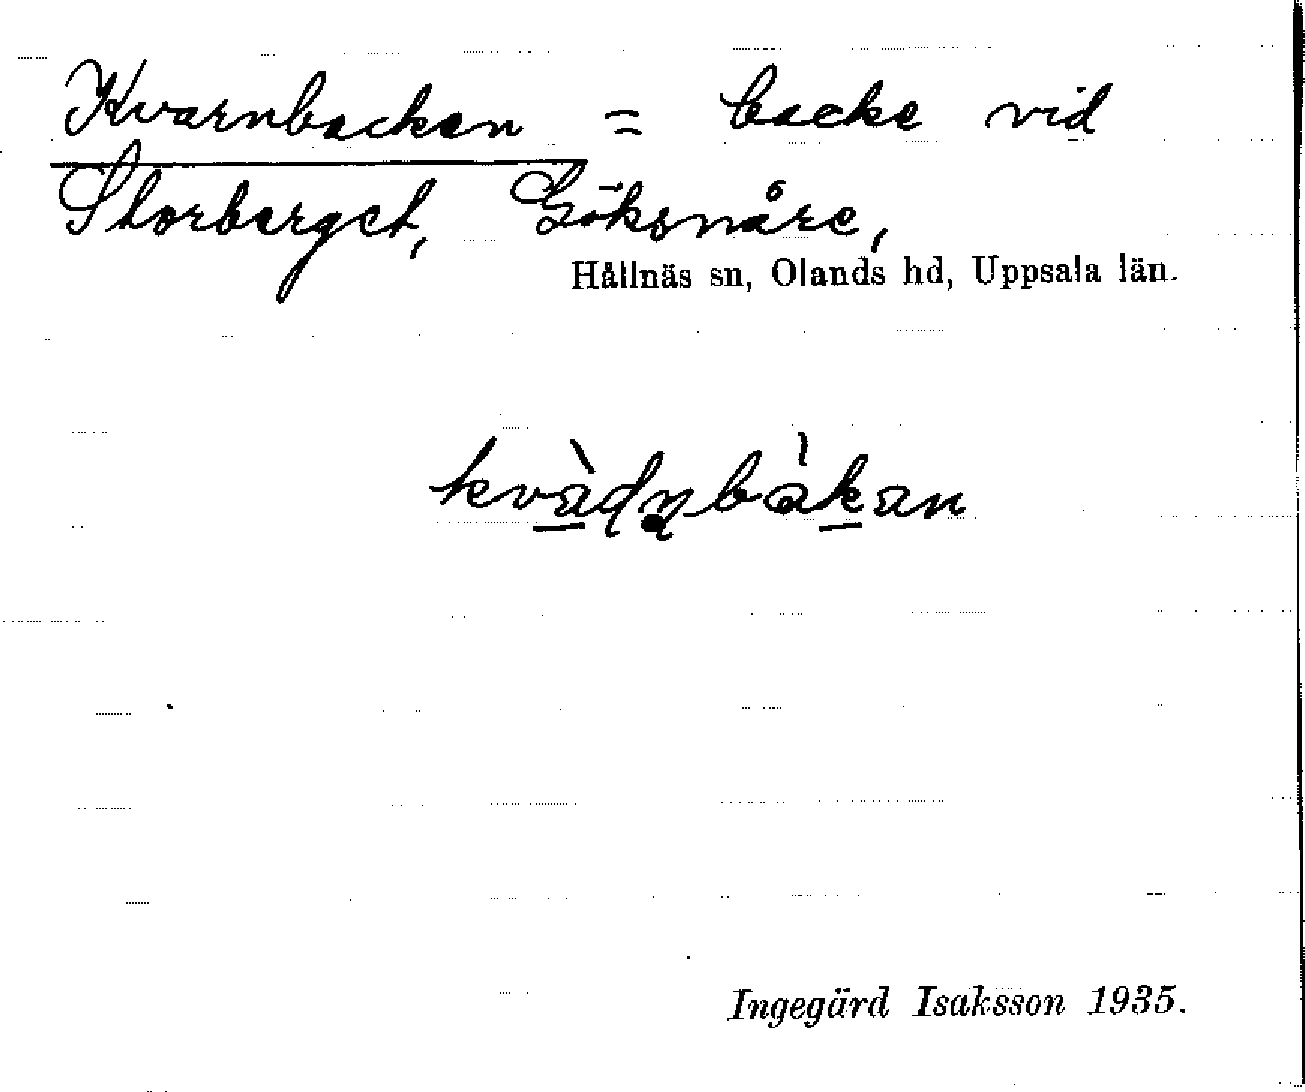 Kvarnbacken = backe vid
Storberget, Göksnåre,
Hållnäs sn, Olands hd, Uppsala län.
kvàdṇbàkan
Ingegärd Isaksson 1935.